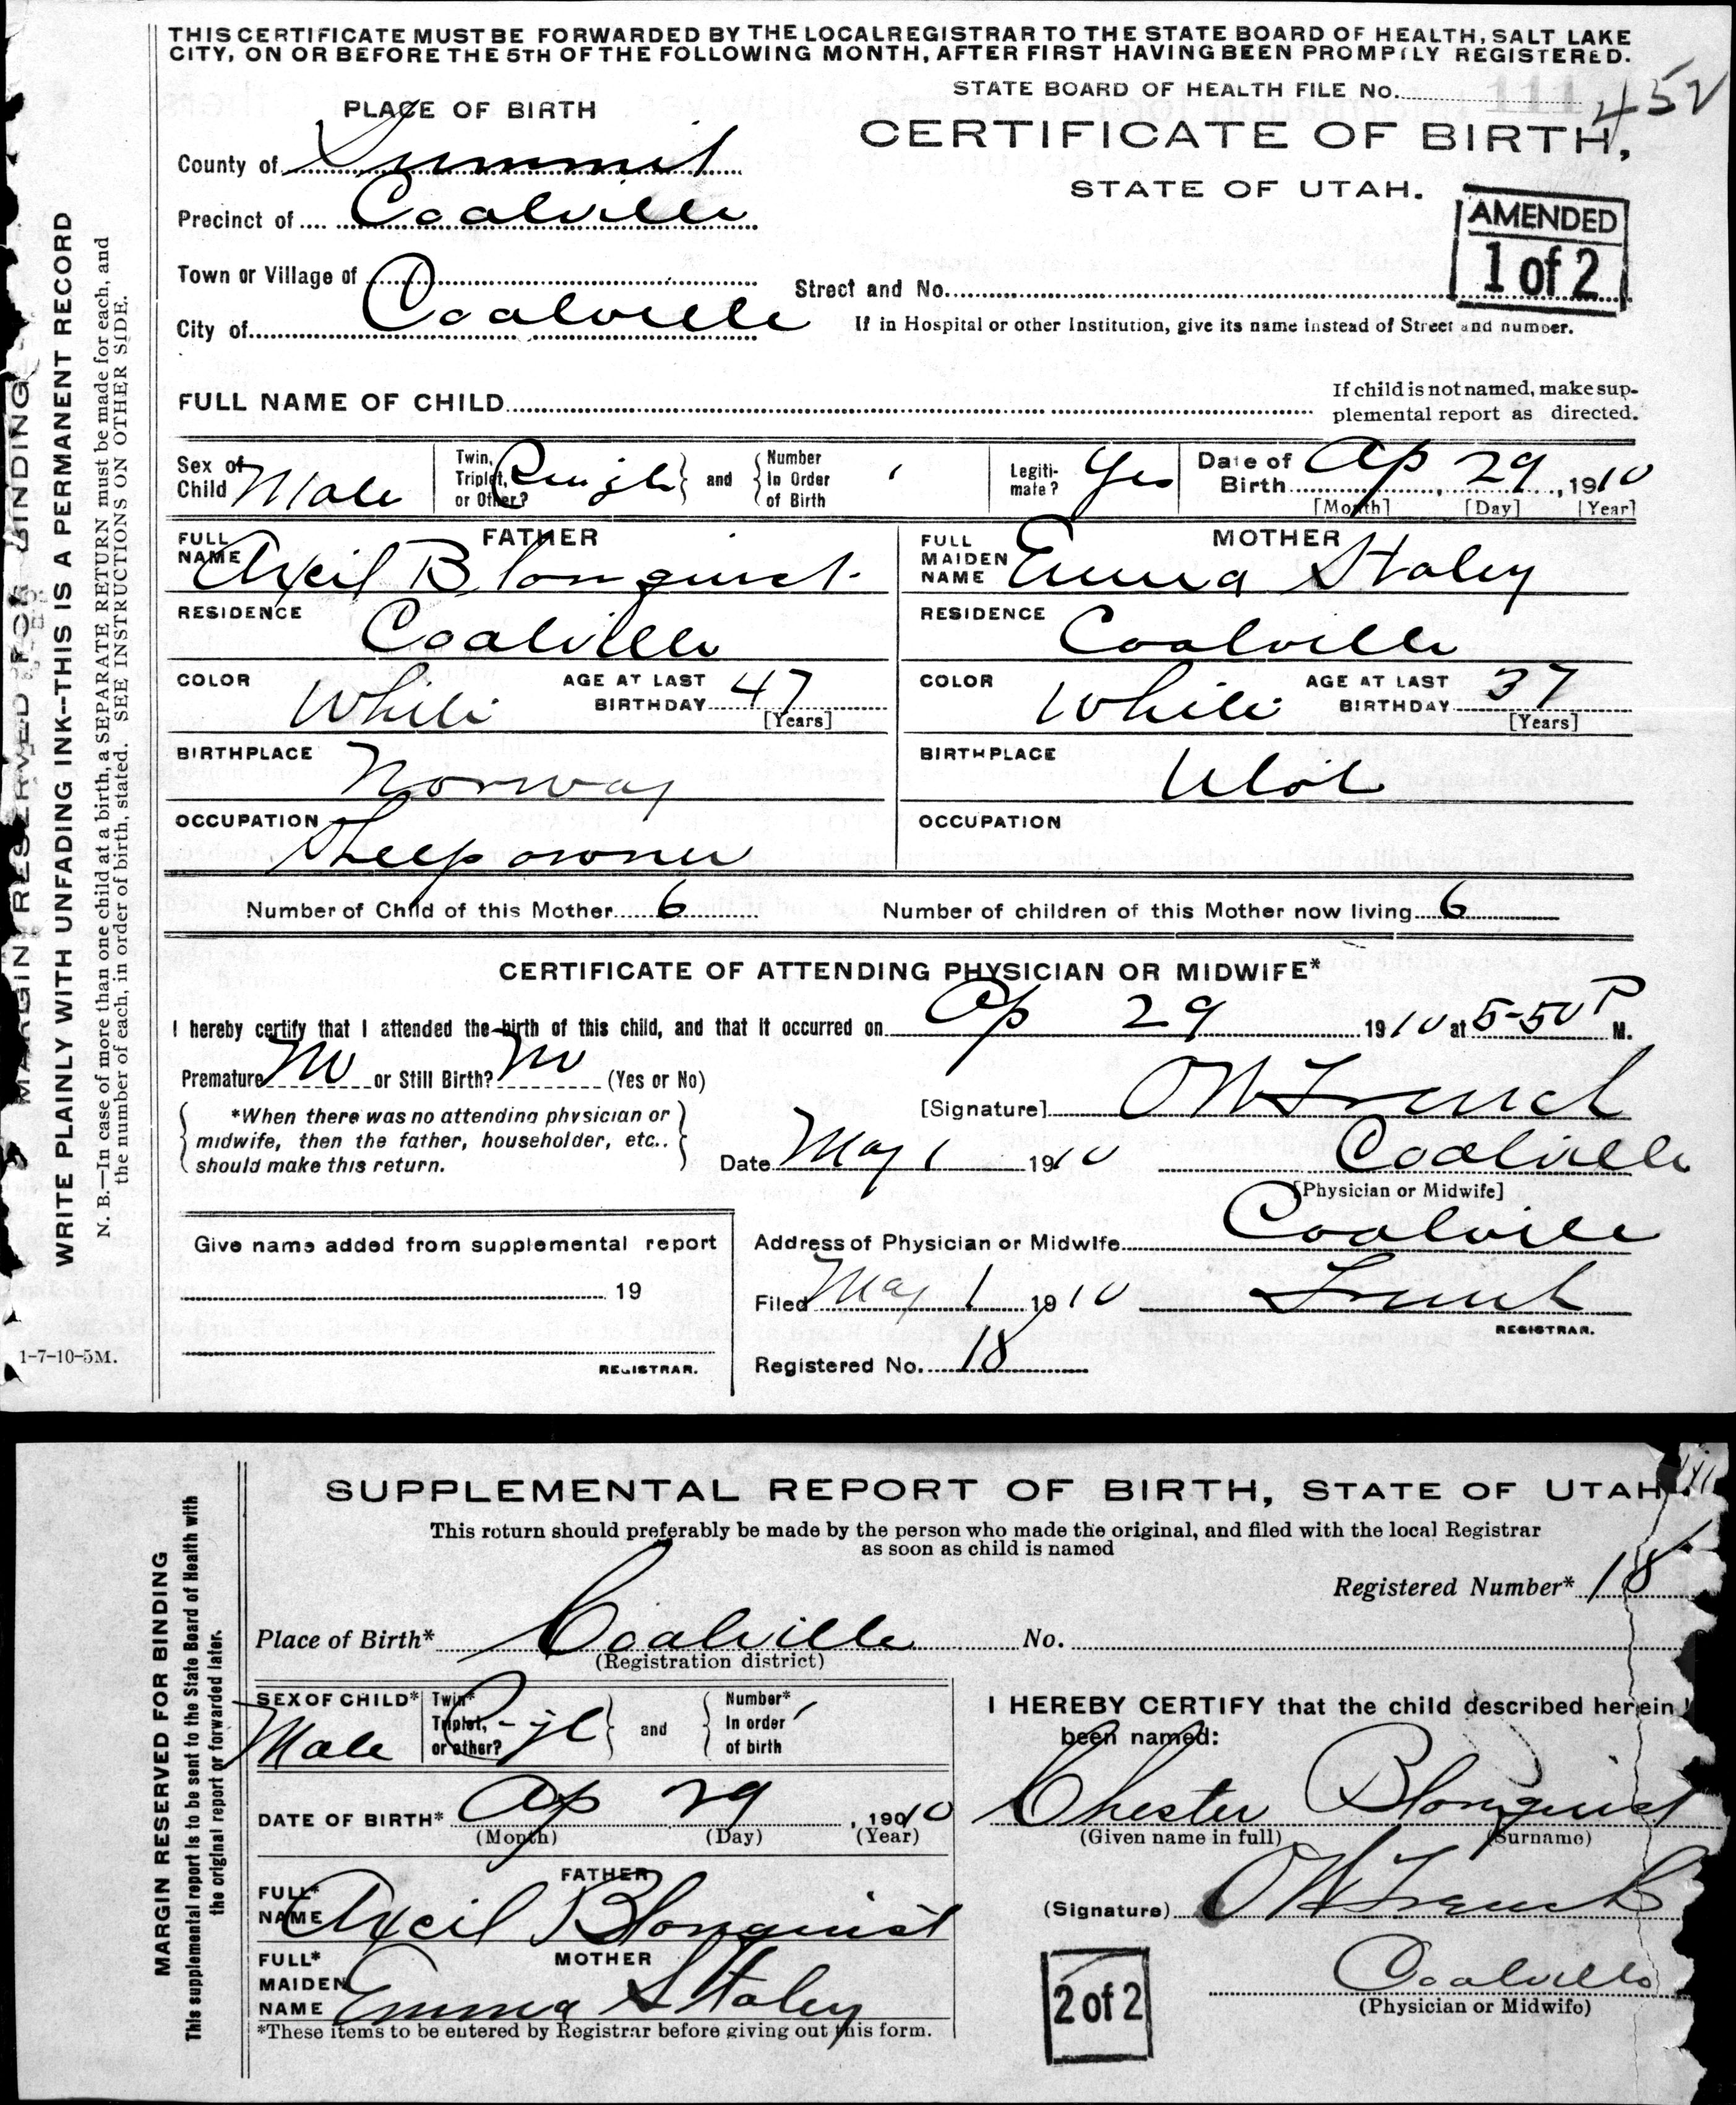 THIS CERTIFICATE MUST BE FORWARDED BY THE LOCAL REGISTRAR TO THE STATE BOARD OF HEALTH, SALT LAKE
CITY, ON OR BEFORE THE 5TH OF THE FOLLOWING MONTH, AFTER FIRST HAVING BEEN PROMPTLY REGISTERED.
STATE BOARD OF HEALTH FILE No. 111 452
PLACE OF BIRTH
CERTIFICATE OF BIRTH,
STATE OF UTAH.
County of Summit
Precinct of Coalville
AMENDED
1 of 2
Town or Village of
Street and No.
City of Coalville
If in Hospital or other Institution, give its name instead of Street and number.
FULL NAME OF CHILD
If child is not named, make sup-
plemental report as directed.
Sex of Child Male
Twin, Triplet, or Other?
and
Number In Order of Birth
Legiti-mate? Yes
Date of Birth Ap 29, 1910
[Month] [Day] [Year]
FATHER
FULL NAME Axcil Blomquist
MOTHER
FULL MAIDEN NAME Emma Staley
RESIDENCE Coalville
RESIDENCE Coalville
COLOR White AGE AT LAST BIRTHDAY 47 [Years]
COLOR White AGE AT LAST BIRTHDAY 37 [Years]
BIRTHPLACE Norway
BIRTHPLACE Utah
OCCUPATION Sheep owner
OCCUPATION
Number of Child of this Mother 6 Number of children of this Mother now living 6
CERTIFICATE OF ATTENDING PHYSICIAN OR MIDWIFE*
I hereby certify that I attended the birth of this child, and that it occurred on Ap 29 1910 at 5-50 P M.
Premature No or Still Birth? No (Yes or No)
*When there was no attending physician or
midwife, then the father, householder, etc.,
should make this return.
[Signature] OW French
Date May 1 1910 Coalville
[Physician or Midwife]
Give name added from supplemental report
19
REGISTRAR.
Address of Physician or Midwife Coalville
Filed May 1 1910 French
REGISTRAR.
Registered No. 18
1-7-10-5M.
MARGIN RESERVED FOR BINDING
WRITE PLAINLY WITH UNFADING INK--THIS IS A PERMANENT RECORD
N. B.—In case of more than one child at a birth, a SEPARATE RETURN must be made for each, and
the number of each, in order of birth, stated. SEE INSTRUCTIONS ON OTHER SIDE.
SUPPLEMENTAL REPORT OF BIRTH, STATE OF UTAH.
This return should preferably be made by the person who made the original, and filed with the local Registrar
as soon as child is named
Registered Number* 18
Place of Birth* Coalville No.
(Registration district)
SEX OF CHILD* Male
Twin* Triplet, or other?
and
Number* In order of birth
I HEREBY CERTIFY that the child described herein
been named:
DATE OF BIRTH* Ap 29, 1910
(Month) (Day) (Year)
Chester Blomquist
(Given name in full) (Surname)
FATHER
FULL* NAME Axcil Blomquist
(Signature) OW French
MOTHER
FULL* MAIDEN NAME Emma Staley
2 of 2
Coalville
(Physician or Midwife)
*These items to be entered by Registrar before giving out this form.
MARGIN RESERVED FOR BINDING
This supplemental report is to be sent to the State Board of Health with
the original report or forwarded later.